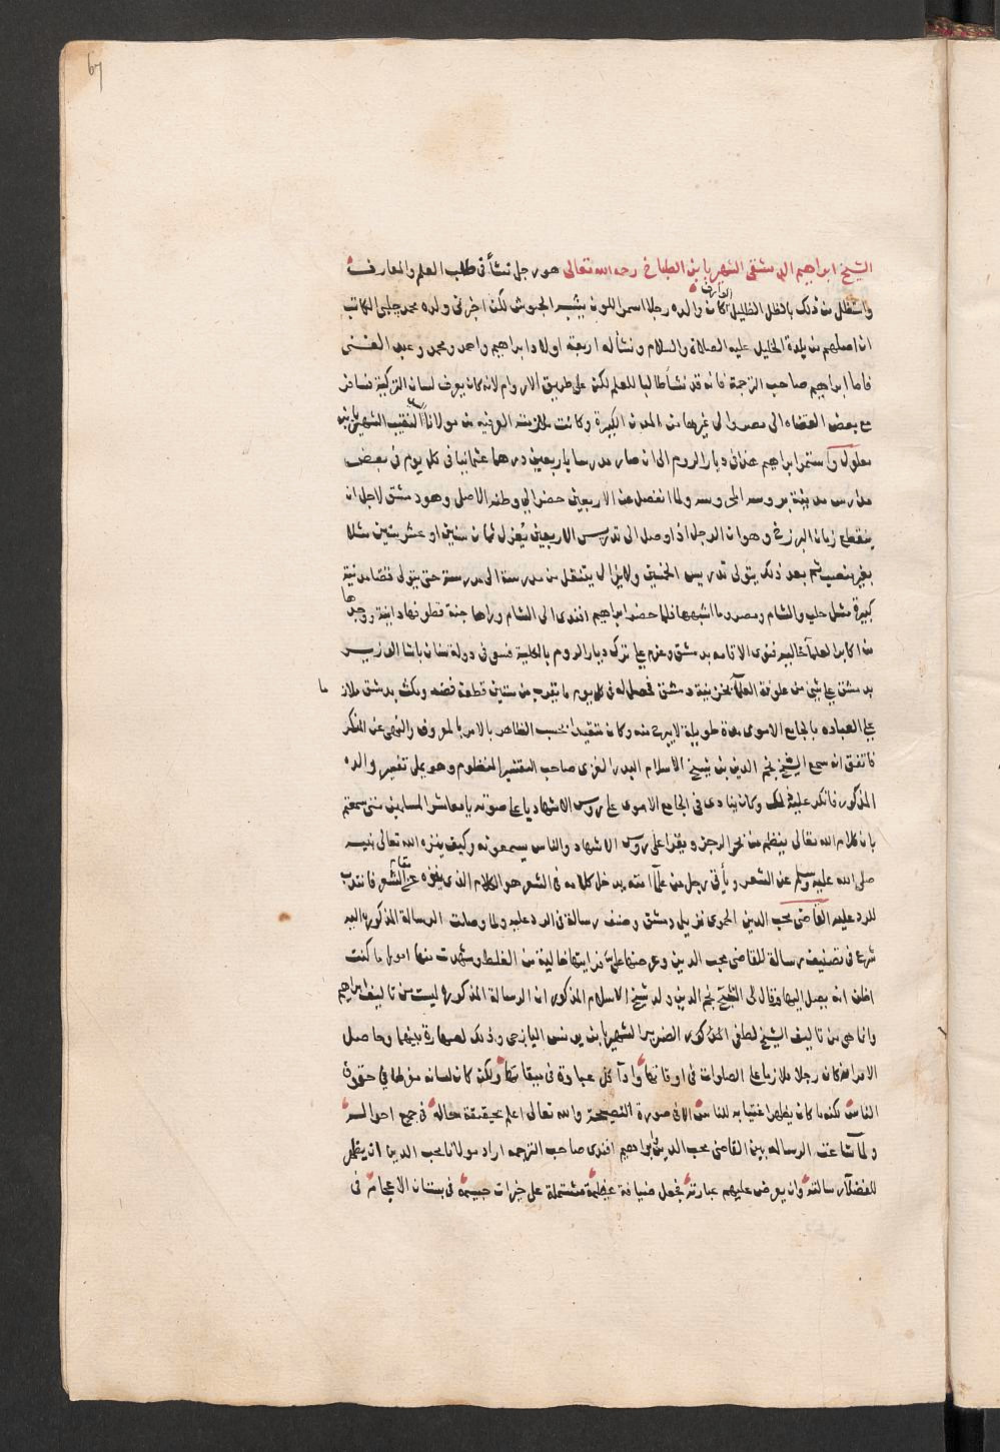 67
الشيخ ابراهيم الدمشقى الشهير بابن الطباخ رحمه الله تعالى هو رجل نشأ فى طلب العلم والمعارف
واستظل من ذلك بالظل الظليل الوارف كان والده رجلا اسمر اللون يشبه الحبوش لكن اخبرنى ولده محمد چلبى الكاتب
ان اصلهم من بلدة الخليل عليه الصلاة والسلام ونشأ له اربعة اولاد ابراهيم واحمد ومحمد وعبد الغنى
فاما ابراهيم صاحب الترجمة فانه قد نشأ طالبا للعلم لكن على طريق الاروام لانه كان يعرف لسان التركية فسافر
مع بعض القضاه الى مصر والى غيرها من المدن الكبيرة وكانت ملازمته العرفيه من مولانا النقيب الشهير بابن
معلول واستمر ابراهيم هذا فى ديار الروم الى ان صار مدرسا باربعين درهما عثمانيا فى كل يوم فى بعض
مدارس مدينة بروسه المحروسه ولما انفصل عن الاربعين حضر الى وطنه الاصلى وهو دمشق لاجل ان
ينقطع زمان البرزخ وهو ان الرجل اذا وصل الى تدريس الاربعين يعزل ثمان سنين او عشر سنين مثلا
بغير منصب ثم بعد ذلك يتولى تدريس الخمسين ولايزال يتنقل من مدرسة الى مدرسة حتى يتولى قضا مدينة
كبيرة مثل حلب والشام ومصر وما اشبهها فلما حضر ابراهيم افندى الى الشام وراها جنة قطوفها دانية ووجدها
من اكابر العلمآ خاليه فنوى الاقامه بدمشق وعزم على ترك ديار الروم بالكلية فسعى فى دولة سنان باشا الوزير
بدمشق على شئ من علوفة العلمآ بخزينة دمشق فحصل له فى كل يوم ما يقرب من ستين قطعة فضه ومكث بدمشق ملاز ما
على العباده بالجامع الاموى مدة طويلة لايبرح منه وكان متقيدا بحسب الظاهر بالامر بالمعروف والنهى عن المنكر
فاتفق انه سمع الشيخ نجم الدين بن شيخ الاسلام البدر الغزى صاحب التفسير المنظوم وهو يملى تفسير والده
المذكور فانكر عليه ذلك وكان ينادى فى الجامع الاموى على رؤس الاشهاد باعلى صوته يا معاشر المسلمين متى سمعتم
بان كلام الله تعالى ينظم من بحر الرجز ويقرا على روس الاشهاد والناس يسمعونه وكيف ينزه الله تعالى نبيه
صلى الله عليه وسلم عن الشعر ويأتى رجل من علمآ امته يدخل كلامه فى الشعر هو الكلام الذى ينزه عن الشعر فانتدب
للرد عليه القاضى محب الدين الحموى نزيل دمشق وصنف رسالة فى الرد عليه ولما وصلت الرسالة المذكوره اليه
شرع فى تصنيف رسالة للقاضى محب الدين وعرضها علي فرايتها خالية من الغلط وشهدت منها امورا ما كنت
اظن انه يصل اليها وقال لى الشيخ نجم الدين ولد شيخ الاسلام المذكور ان الرسالة المذكوره ليست من تاليف ابراهيم
وانما هى من تاليف الشيخ لطفى المذكور الضرير الشهير بابن يونس اليازجى وذلك لصهارة بينهما وحاصل
الامر انه كان رجلا ملازما على الصلوات فى اوقاتها وادآ كل عبادة فى ميقاتها ولكن كان لسانه مؤلما فى حقوق
الناس لكنه ما كان يظهر اغتيابه للناس الا فى صورة النصيحة والله تعالى اعلم بحقيقة حاله فى جميع احواله
ولما شاعت الرساله بين القاضى محب الدين وابراهيم افندى صاحب الترجمه اراد مولانا محب الدين ان يظهر
للفضلآ رسالته وان يعرض عليهم عبارته فجعل ضيافة عظيمة مشتملة على خيرات جسيمة فى بستان الاعجام فى